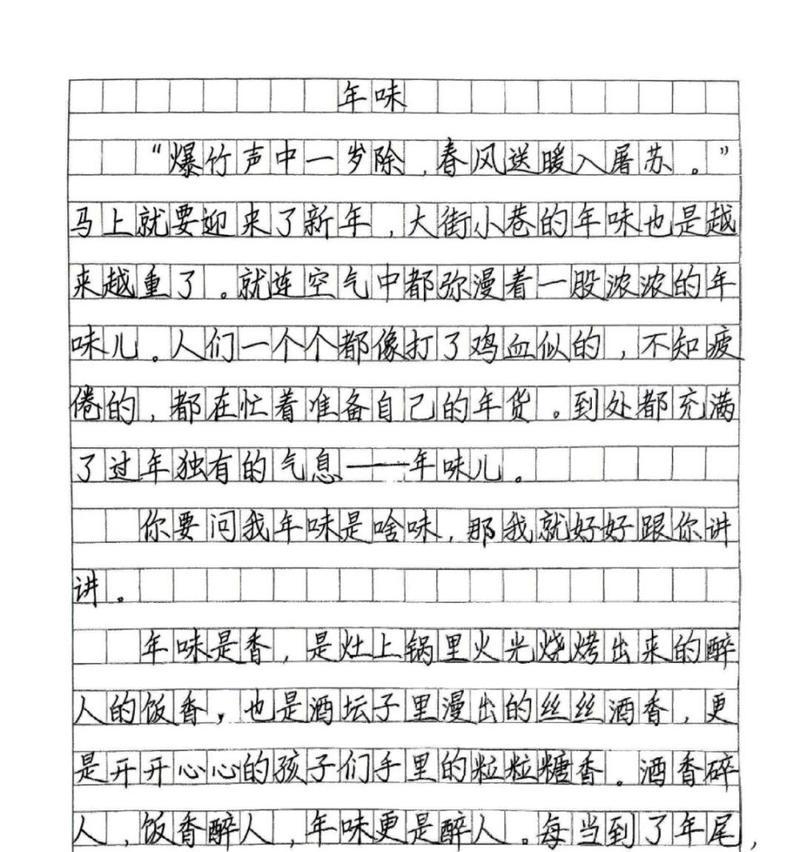 年味
“爆竹声中一岁除,春风送暖入屠苏。”
马上就要迎来了新年,大街小巷的年味也是越
来越重了。就连空气中都弥漫着一股浓浓的年
味儿。人们一个个都像打了鸡血似的,不知疲
倦的,都在忙着准备自己的年货。到处都充满
了过年独有的气息——年味儿。
你要问我年味是啥味,那我就好好跟你讲
讲。
年味是香,是灶上锅里火光烧烤出来的醉
人的饭香,也是酒坛子里漫出的丝丝酒香,更
是开开心心的孩子们手里的粒粒糖香。酒香碎
人,饭香醉人,年味更是醉人。每当到了年尾,